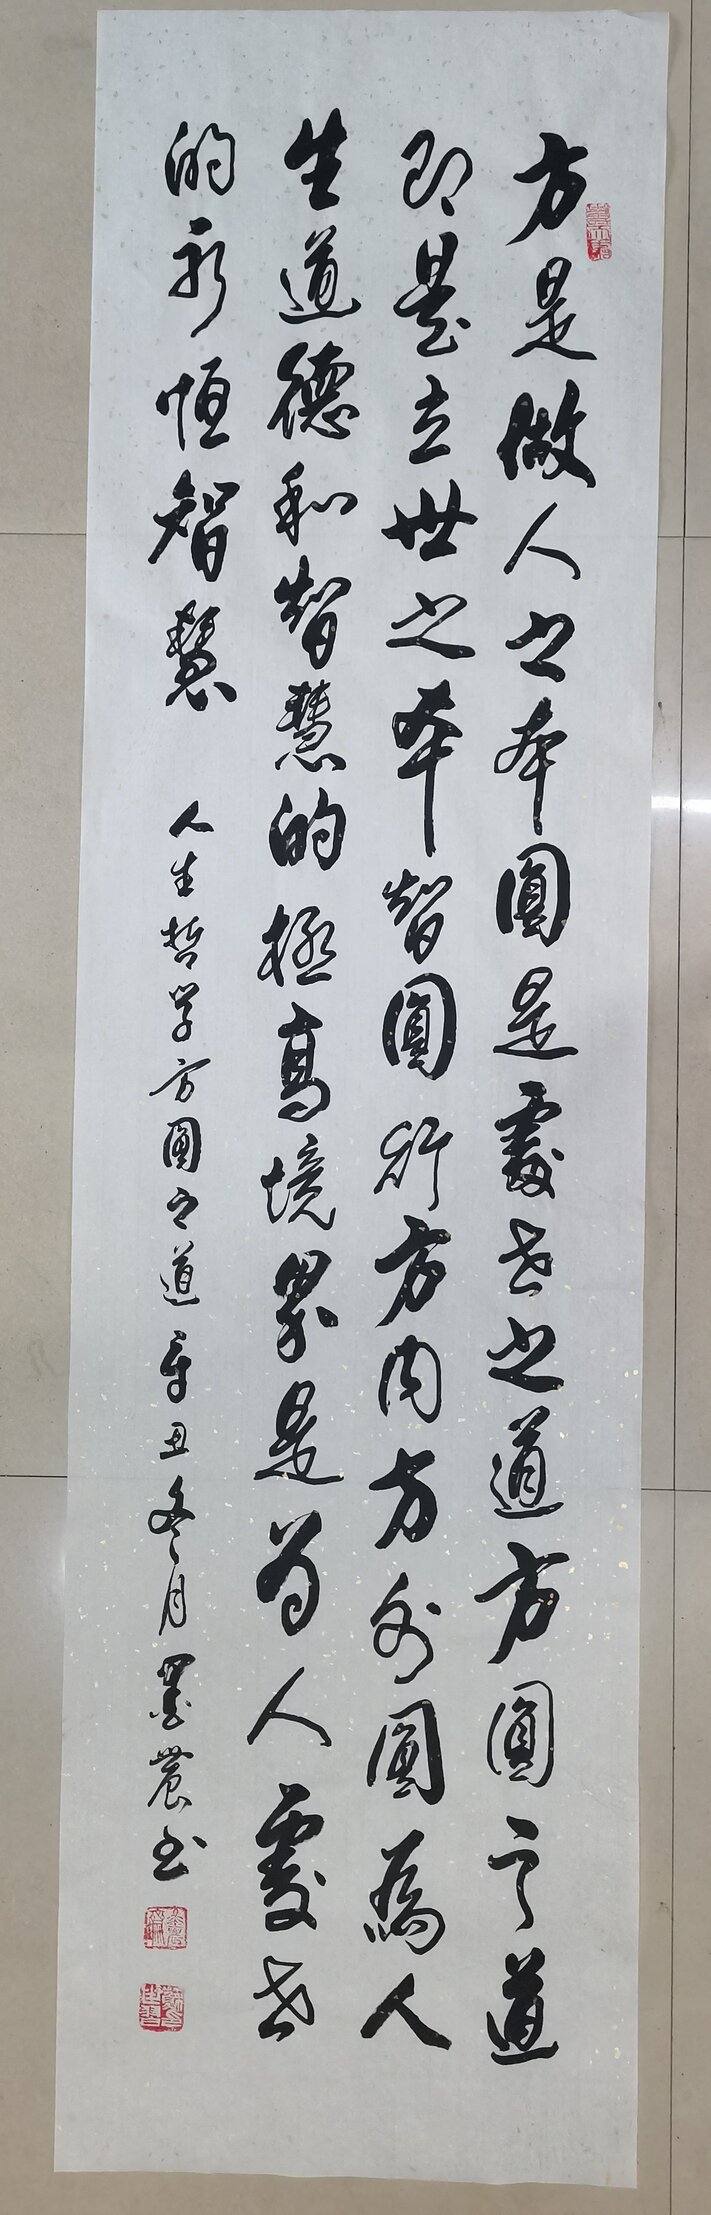 方是做人之本圓是處世之道方圓之道
即是立世之本智圓行方内方外圓為人
生道德和智慧的極高境界是為人處世
的永恒智慧
人生哲学方圓之道辛丑冬月墨農书